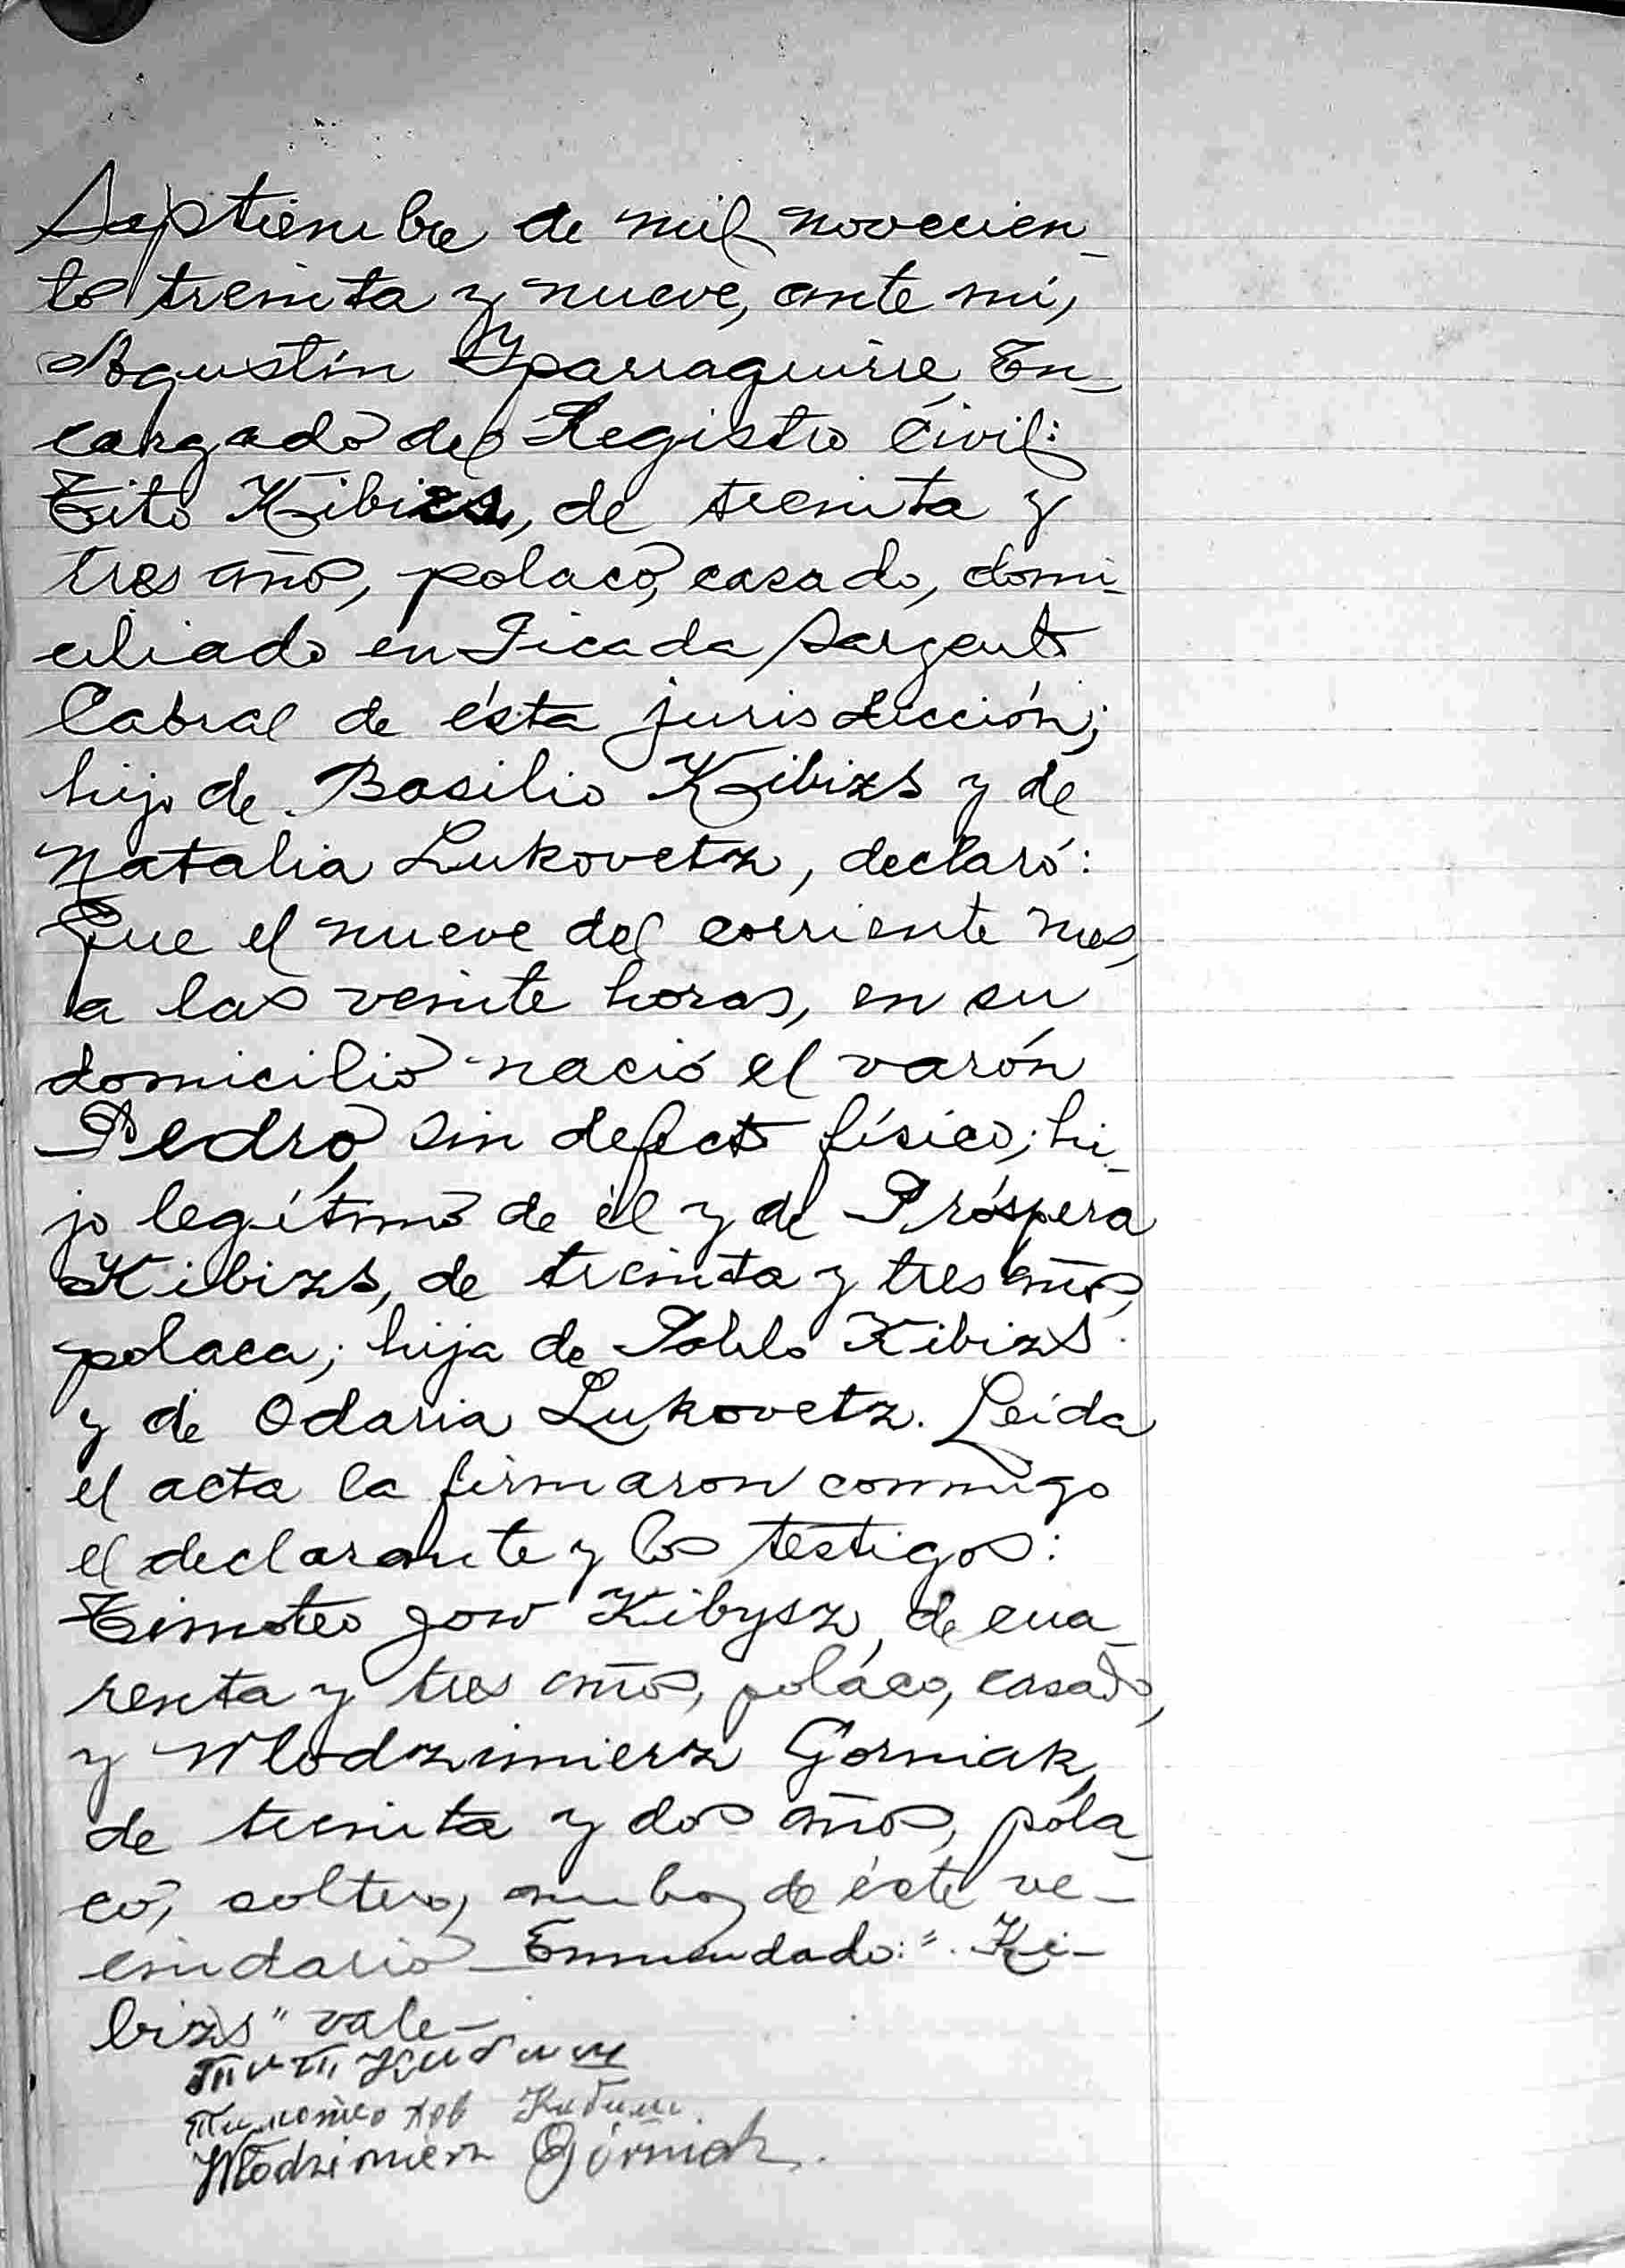 Septiembre de mil novecien_
tos treinta y nueve, ante mí,
Agustín Yparraguirre, En_
cargado del Registro Civil:
Tito Kibizs, de treinta y
tres años, polaco, casado, domi_
ciliado en Picada Sargento
Cabral de ésta jurisdicción;
hijo de Basilio Kibizs y de
Natalia Lukovetz, declaró:
Que el nueve del corriente mes,
a las veinte horas, en su
domicilio nació el varón
Pedro, sin defecto físico; hi_
jo legítimo de él y de Próspera
Kibizs, de treinta y tres años,
polaca; hija de Pablo Kibizs
y de Odaria Lukovetz. Leída
el acta la firmaron conmigo
el declarante y los testigos:
Timoteo Jow Kibysz, de cua_
renta y tres años, polaco, casado,
y Wlodzimierz Gorniak,
de treinta y dos años, pola_
co, soltero, ambos de éste ve_
cindario_ Enmendado: "Ki_
bizs" vale_
Тит Кибиш
Тимотео Кибиш
Włodzimierz Górniak.